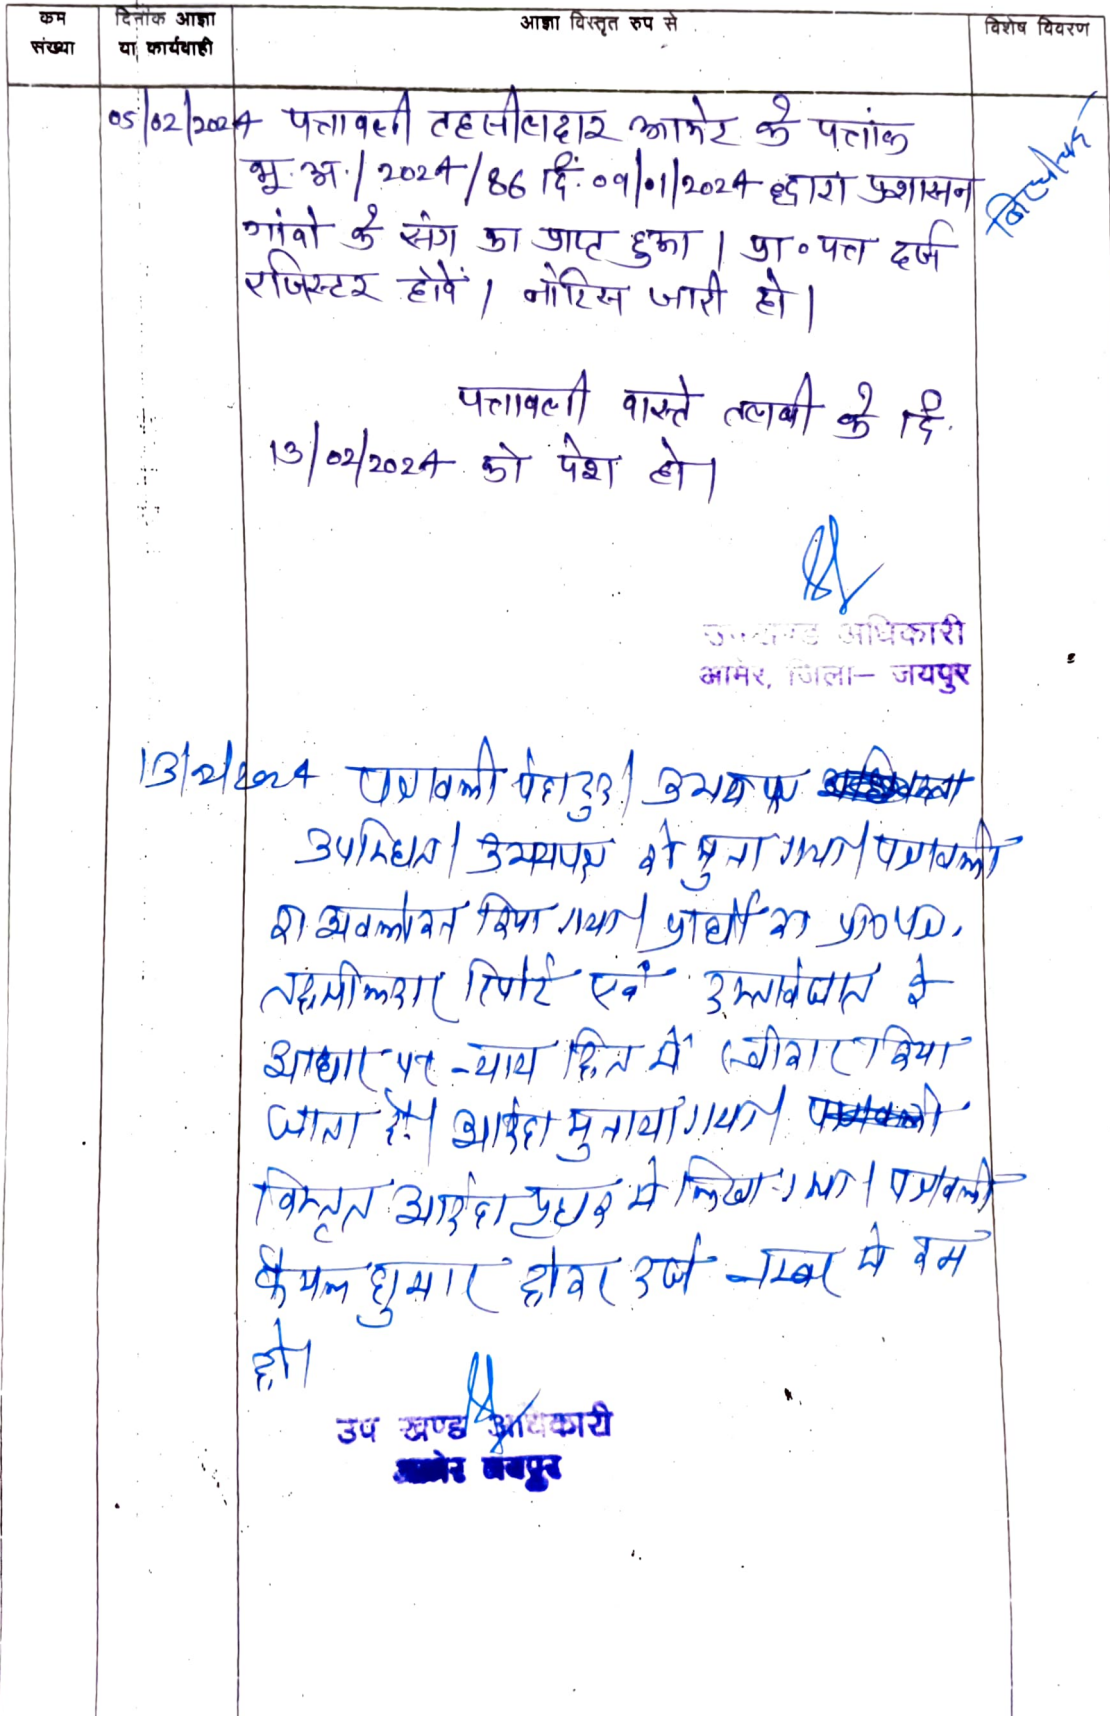 क्रम संख्या
दिनांक आज्ञा या कार्यवाही
आज्ञा विस्तृत रुप से
विशेष विवरण
05/02/2024 पत्तावली तहसीलदार आमेर के पत्तांक
भू.अ./2024/86 दि. 09/01/2024 द्वारा प्रशासन
गांवो के संग का प्राप्त हुआ। प्रा०पत्त दर्ज
रजिस्टर होवें। नोटिस जारी हो।
पत्तावली वास्ते तलबी के दि.
13/02/2024 को पेश हो।
उपखण्ड अधिकारी
आमेर, जिला– जयपुर
13/2/2024 पत्रावली पेश हुई। उभयपक्ष
उपस्थित। उभयपक्ष को सुना गया। पत्रावली
का अवलोकन किया गया। प्रार्थी का प्रा०पत्र,
तहसीलदार रिपोर्ट एवं दस्तावेजात के
आधार पर न्याय हित में स्वीकार किया
जाता है। आदेश सुनाया गया। पत्रावली
विस्तृत आदेश पृथक से लिखा गया। पत्रावली
फैसल शुमार होकर दर्ज नम्बर से कम
हो।
उप खण्ड अधिकारी
आमेर जयपुर